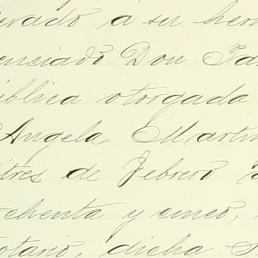 levado á su her
enciado Don Ja
ública otorgada
Angela Martin
itres de Febrero
chenta y cinco,
otario, dicha